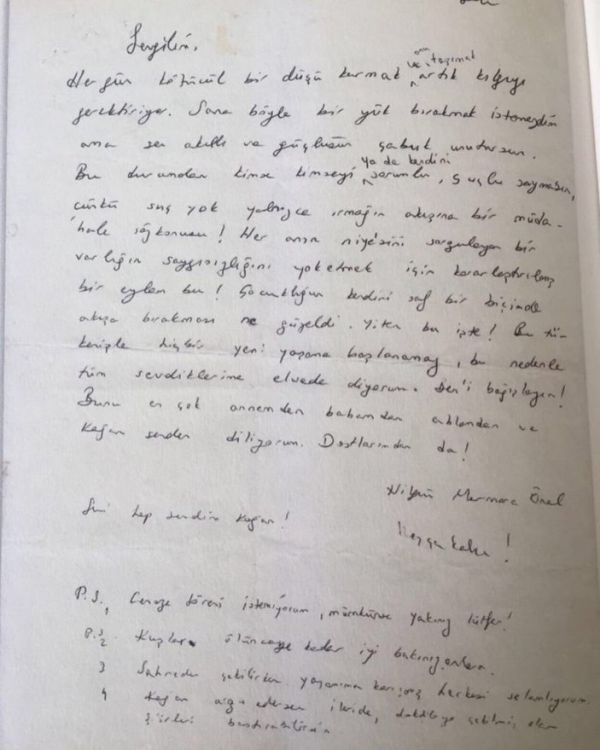 Sevgilim,
ve onu taşımak
Her gün kötücül bir düşü kurmak artık kılgıyı
gerektiriyor. Sana böyle bir yük bırakmak istemezdim
ama sen akıllı ve güçlüsün çabuk unutursun.
ya da kendini
Bu durumdan kimse kimseyi sorumlu, suçlu saymasın,
çünkü suç yok yalnızca ırmağın akışına bir müda-
hale sözkonusu! Her anın niye'sini sorgulayan bir
varlığın saygısızlığını yoketmek için kararlaştırılmış
bir eylem bu! Çocukluğun kendini saf bir biçimde
akışa bırakması ne güzeldi. Yiten bu işte! Bu tü-
kenişle hiçbir yeni yaşama başlanamaz, bu nedenle
tüm sevdiklerime elveda diyorum. Ben'i bağışlayın!
Bunu en çok annemden babamdan ablamdan ve
Kağan senden diliyorum. Dostlarımdan da!
Nilgün Marmara Önal
Seni hep sevdim Kağan!
Hoşça kalın!
P.S.1 Cenaze töreni istemiyorum, mümkünse yakınız lütfen!
P.S.2. Kuşlara ölünceye kadar iyi bakınız
3 Sahneden çekilirken yaşamıma karışmış herkesi selamlıyorum.
4 Kağan arzu edersen ileride, daktiloya çekilmiş olan
şiirleri bastırabilirsin